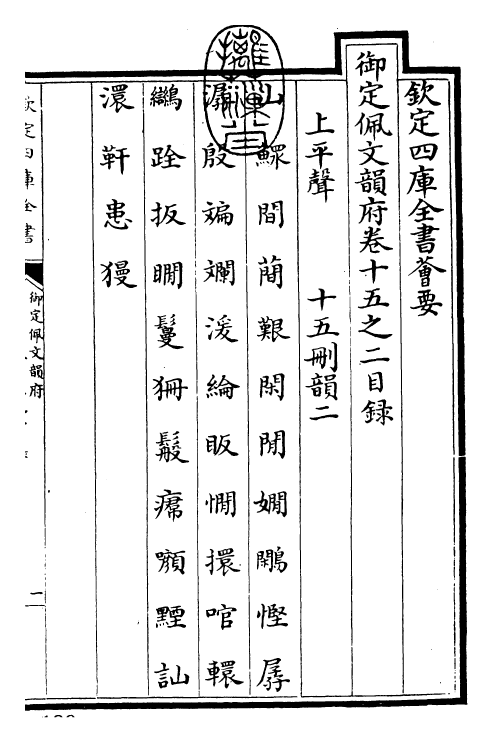 欽定四庫全書薈要
御定佩文韻府卷十五之二目録
上平聲 十五刪韻二
山鰥間蕑艱閑閒嫺鷴慳孱
潺殷斒斕湲綸眅憪擐㖦轘
𪈩跧扳瞯鬘狦鬗癏㘛黫訕
澴靬患獌
欽定四庫全書
御定佩文韻府
二